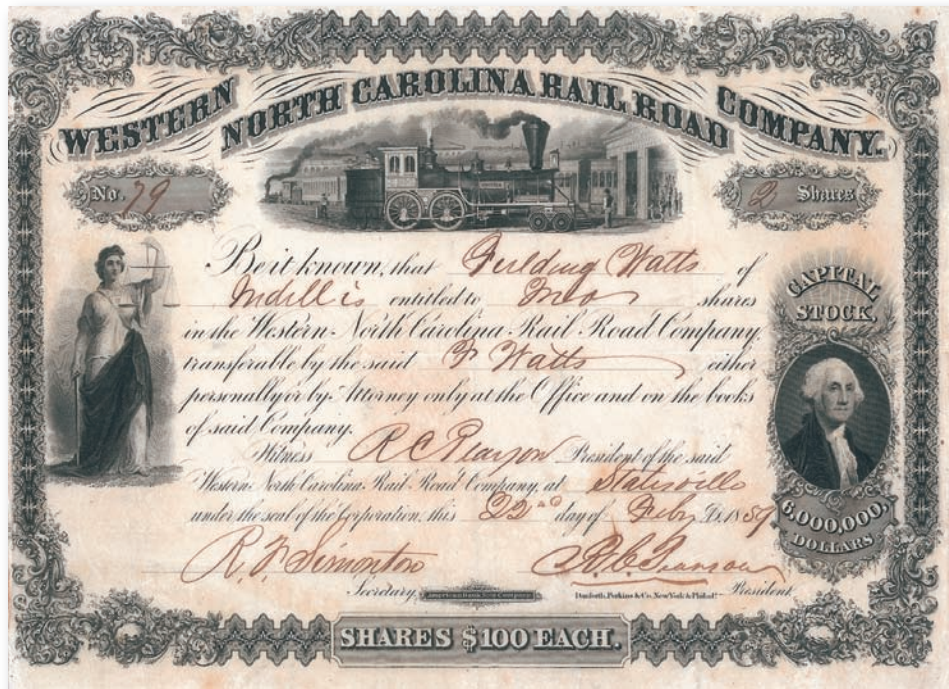 WESTERN NORTH CAROLINA RAIL ROAD COMPANY.
No. 79
2 Shares
Be it known, that Feilding Watts of
Irdell is entitled to Two shares
in the Western North Carolina Rail Road Company
transferable by the said F Watts either
personally or by Attorney only at the Office and on the books
of said Company.
Witness R C Pearson President of the said
Western North Carolina Rail Road Company, at Statesville
under the seal of the Corporation, this 22nd day of Feby A.D. 1859
CAPITAL
STOCK,
6,000,000,
DOLLARS
R. F. Simonton
R. C. Pearson
Secretary,
American Bank Note Company
Danforth, Perkins & Co. New York & Philada.
President
SHARES $100 EACH.